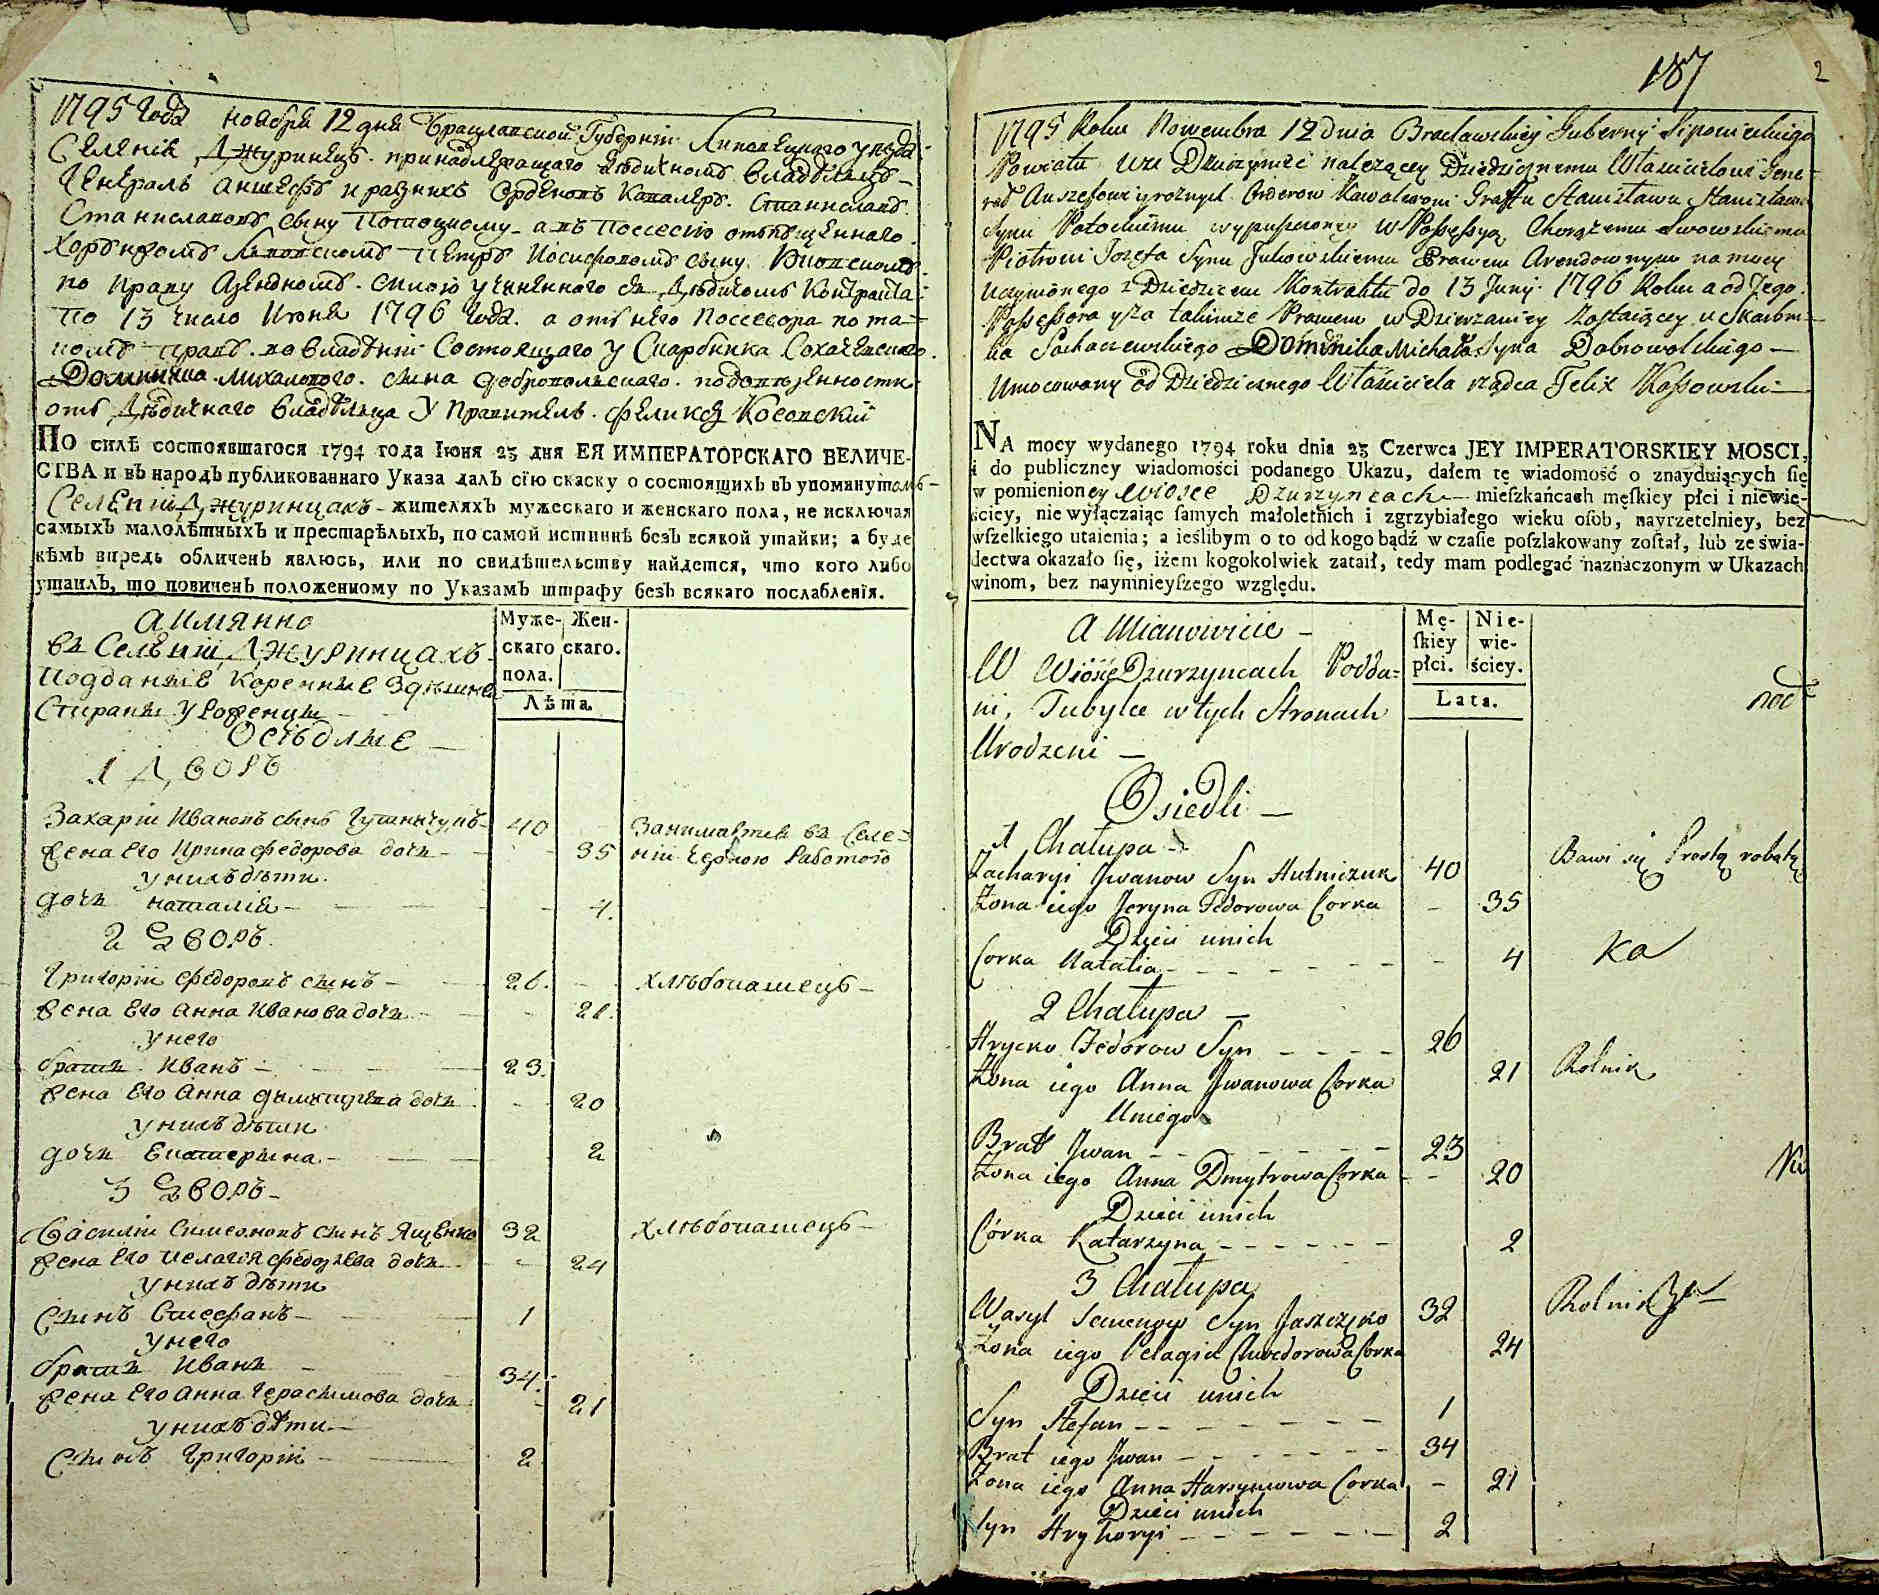 1795 года ноября 12 дня Брацлавской Губернiи Липовецкого уезда
Селенiя Джуринецъ принадлежащаго дѣдичномъ владѣльцъ
Генералъ аншефъ и разныхъ Орденовъ Кавалеръ Станиславъ
Станиславовъ сыну Потоцкому а въ Поссесiю
Петръ Иосифовомъ сыну
по праву Арендномъ силою учиненнаго съ Дѣдичомъ Контракта
По 13 число Июня 1796 года а отъ него Поссесора по та-
комъ правѣ во владѣнiи Состоящаго у Скарбника Сохачевского
Доминика Михайлового сына Добровольского
отъ Дѣдичнаго владѣльца Управитель Феликсъ Косовскiй
ПО силѣ состоявшагося 1794 года Iюня 23 дня ЕЯ ИМПЕРАТОРСКАГО ВЕЛИЧЕ-
СТВА и въ народъ публикованнаго Указа далъ сїю скаску о состоящихъ въ упомянутомъ
Селенiи Джуринцахъ жителяхъ мужескаго и женскаго пола, не исключая
самыхъ малолѣтныхъ и престарѣлыхъ, по самой истиннѣ безъ всякой утайки; а буде
кѣмъ впредь обличенъ явлюсь, или по свидѣтельству найдется, что кого либо
утаилъ, то повиненъ положенному по Указамъ штрафу безъ всякаго послабленїя.
а имянно
въ Селенiи Джуринцахъ
Подданые Коренные здешней
Стираны Уроженцы
Осѣдлые
Муже-скаго пола.
Жен-скаго.
Лѣта.
1 Дворъ
Захарiй Ивановъ сынъ 40 Занимается въ Селе-
Жена Его Ирина Федорова дочь 35 нiи черною работою
у нихъ дѣти
дочь Наталiя 4.
2 Дворъ
Григорiй Федоровъ сынъ 26. хлѣбопашецъ
Жена Его Анна Иванова дочь 21.
у него
братъ Иванъ 23.
Жена Его Анна Дмитриева дочь 20
у нихъ дѣти
дочь Екатерина 2
3 Дворъ
Василiй Симеоновъ сынъ Ященко 32 хлѣбопашецъ
Жена Его Пелагiя дочь 24
у нихъ дѣти
Сынъ Стефанъ 1
у него
братъ Иванъ 34.
Жена Его Анна Герасимова дочь 21
у нихъ дѣти
Сынъ Григорiй 2
187
2
1795 Roku Nowembra 12 Dnia Bracławskiey Guberny Lipowieckiego
Powiatu Wsi Dzurzyniec należącey Dziedzicznemu Właścicielowi Gene-
rał Anszefowi y rożnych Orderow Kawalerowi Graffu Stanisławu Stanisława
Synu Potockiemu wypuszczoney w Possessyą Chorążemu Lwowskiemu
Piotrowi Jozefa Synu Prawem Arendownym na mocy
uczynionego z Dziedzicem Kontraktu do 13 Juny 1796 Roku a od Jego
Possessora y za takimże Prawem w Dzierżawiey zostaiącey u Skarbni-
ka Sochaczewskiego Dominika Michała Syna Dobrowolskiego
Umocowany od Dziedzicznego Właściciela rządca Felix Kossowski
NA mocy wydanego 1794 roku dnia 23 Czerwca JEY IMPERATORSKIEY MOSCI,
i do publiczney wiadomości podanego Ukazu, dałem tę wiadomość o znayduiących ſię
w pomienioney Wiosce Dzurzyncach mieſzkańcach męſkiey płci i niewie-
ściey, nie wyłączaiąc ſamych małoletnich i zgrzybiałego wieku oſob, nayrzetelniey, bez
wſzelkiego utaienia; a ieślibym o to od kogo bądź w czaſie poſzlakowany zoſtał, lub ze świa-
dectwa okazało ſię, iżem kogokolwiek zataił, tedy mam podlegać naznaczonym w Ukazach
winom, bez naymnieyſzego względu.
A Mianowicie
W Wiosce Dzurzyncach Podda-
ni, Tubylce w tych Stronach
Urodzeni
Osiedli
Mę-ſkiey płci.
Nie-wie-ściey.
Lata.
1 Chałupa
Zacharyi Jwanow Syn Hutniczuk 40 Bawi się Prostą robotą
Żona iego Jeryna Fedorowa Corka 35
Dzieci unich
Corka Natalia 4 Ka
2 Chałupa
Hrycko Fedorow Syn 26
Żona iego Anna Jwanowa Corka 21 Rolnik
Uniego
Bratt Jwan 23
Żona iego Anna Dmytrowa Corka 20
Dzieci unich
Córka Katarzyna 2
3 Chałupa
Wasyl Semenow Syn Jaszczęko 32 Rolnik
Żona iego Pelagia Chwedorowa Corka 24
Dzieci unich
Syn Stefan 1
Brat iego Jwan 34
Żona iego Anna Harsymowa Corka 21
Dzieci unich
Syn Hryhoryi 2